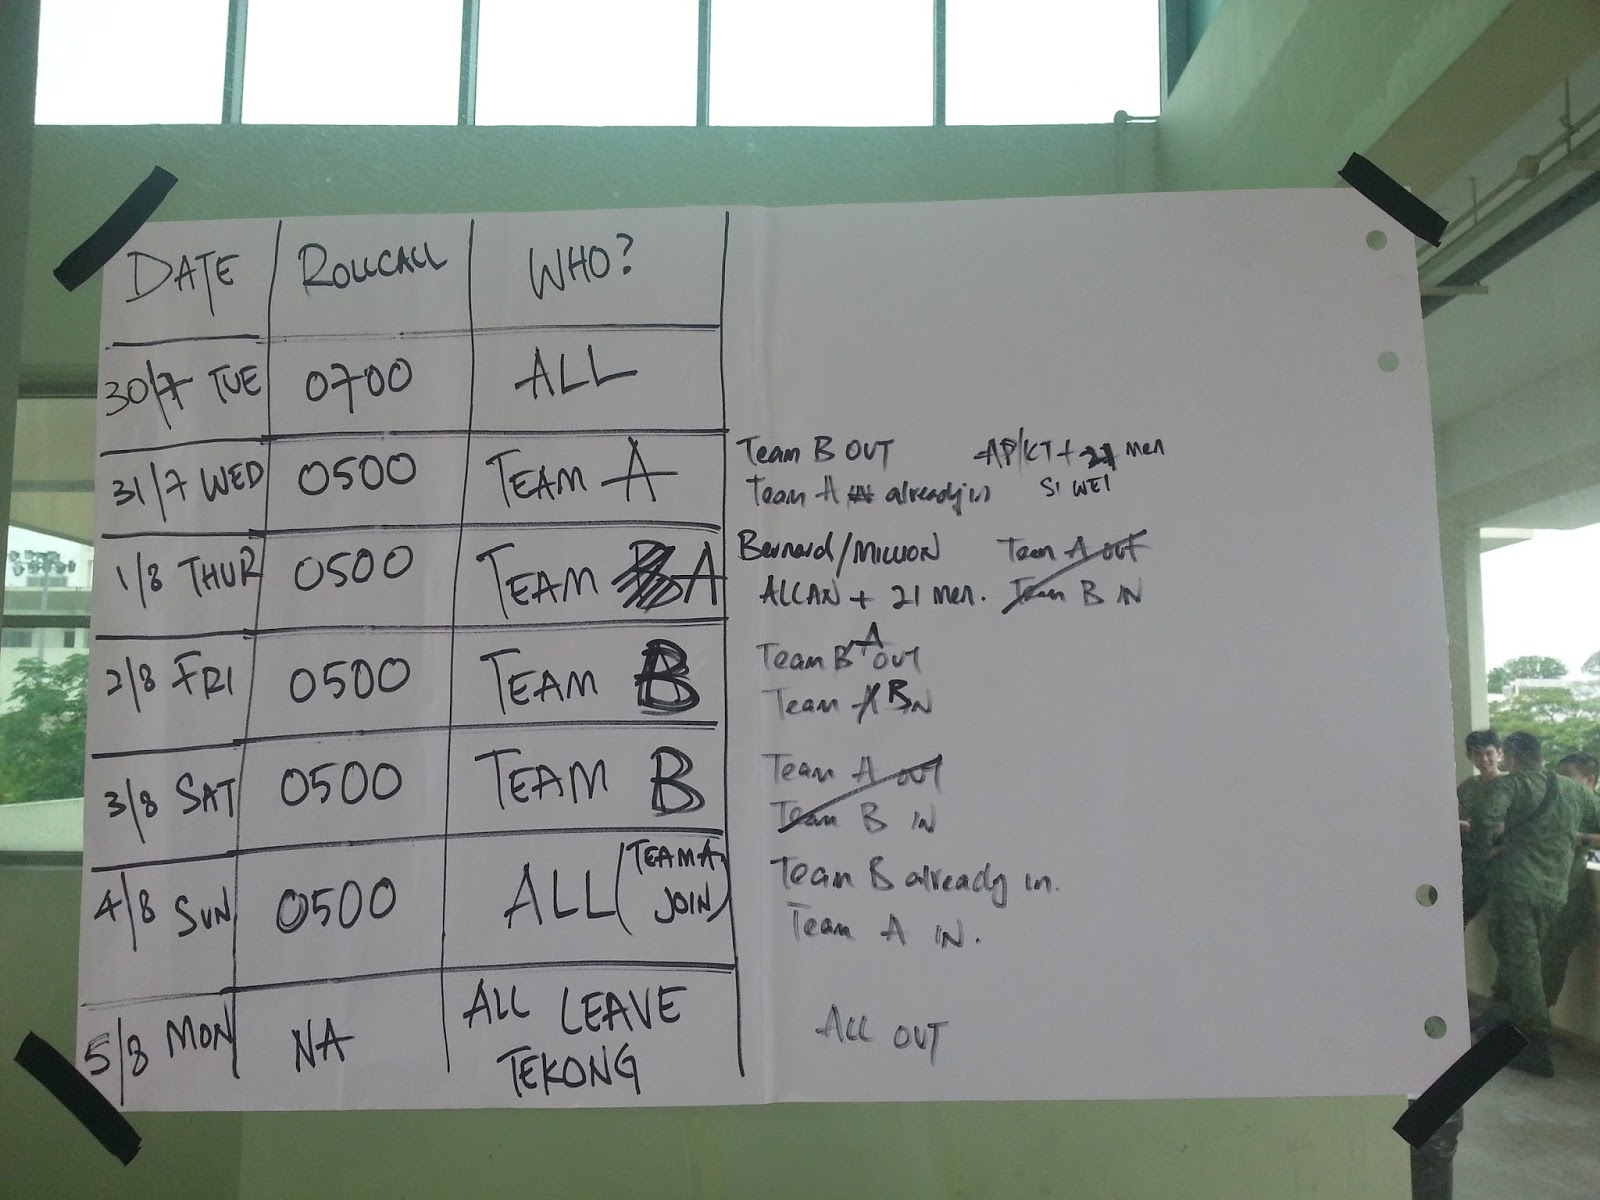 DATE ROLLCALL WHO?
30/7 TUE 0700 ALL
31/7 WED 0500 TEAM A
Team B OUT AP/KT + men
Team A already in SI WEI
1/8 THUR 0500 TEAM A
Bernard/MILLION Team A out
ALLAN + 21 men. Team B IN
2/8 FRI 0500 TEAM B
Team A OUT
Team B IN
3/8 SAT 0500 TEAM B
Team A out
Team B IN
4/8 SUN 0500 ALL (TEAM A
JOIN)
Team B already in.
Team A IN.
5/8 MON NA ALL LEAVE
TEKONG
ALL OUT